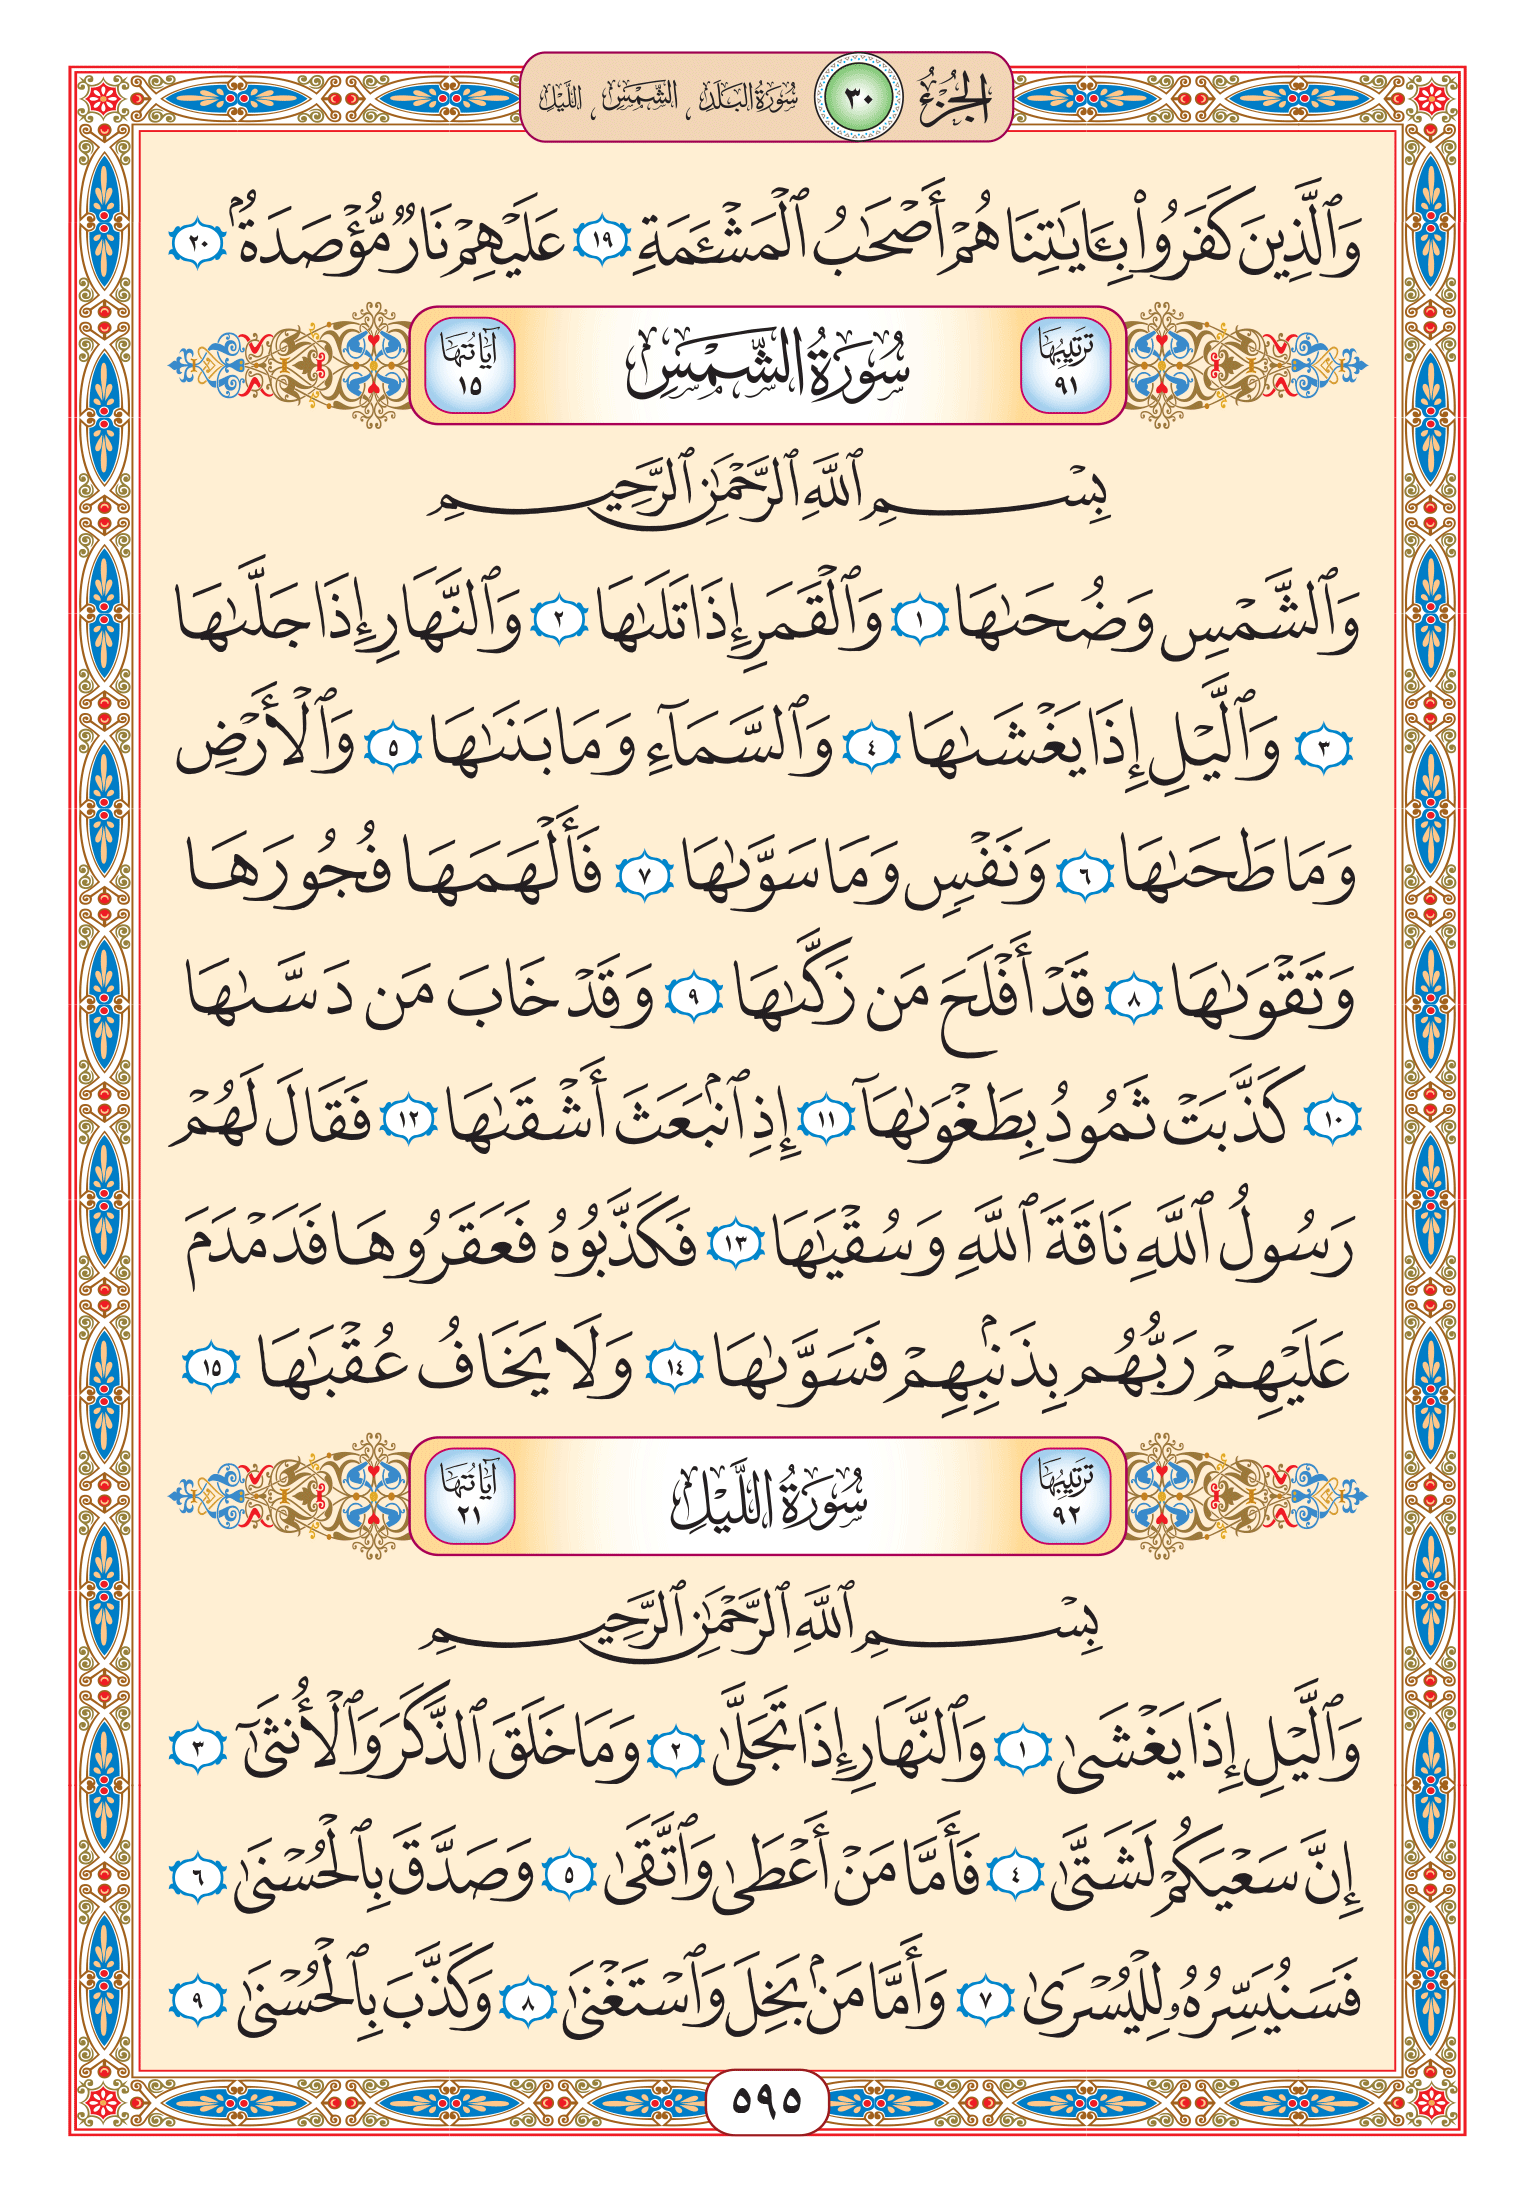 الجزء ٣٠ سورة البلد ، الشمس ، الليل
وَٱلَّذِينَ كَفَرُواْ بِـَٔايَٰتِنَا هُمْ أَصْحَٰبُ ٱلْمَشْـَٔمَةِ ١٩ عَلَيْهِمْ نَارٌ مُّؤْصَدَةٌۢ ٢٠
ترتيبها ٩١ سُورَةُ الشَّمْسِ آياتها ١٥
بِسْمِ ٱللَّهِ ٱلرَّحْمَٰنِ ٱلرَّحِيمِ
وَٱلشَّمْسِ وَضُحَىٰهَا ١ وَٱلْقَمَرِ إِذَا تَلَىٰهَا ٢ وَٱلنَّهَارِ إِذَا جَلَّىٰهَا
٣ وَٱلَّيْلِ إِذَا يَغْشَىٰهَا ٤ وَٱلسَّمَآءِ وَمَا بَنَىٰهَا ٥ وَٱلْأَرْضِ
وَمَا طَحَىٰهَا ٦ وَنَفْسٍ وَمَا سَوَّىٰهَا ٧ فَأَلْهَمَهَا فُجُورَهَا
وَتَقْوَىٰهَا ٨ قَدْ أَفْلَحَ مَن زَكَّىٰهَا ٩ وَقَدْ خَابَ مَن دَسَّىٰهَا
١٠ كَذَّبَتْ ثَمُودُ بِطَغْوَىٰهَآ ١١ إِذِ ٱنۢبَعَثَ أَشْقَىٰهَا ١٢ فَقَالَ لَهُمْ
رَسُولُ ٱللَّهِ نَاقَةَ ٱللَّهِ وَسُقْيَٰهَا ١٣ فَكَذَّبُوهُ فَعَقَرُوهَا فَدَمْدَمَ
عَلَيْهِمْ رَبُّهُم بِذَنۢبِهِمْ فَسَوَّىٰهَا ١٤ وَلَا يَخَافُ عُقْبَٰهَا ١٥
ترتيبها ٩٢ سُورَةُ اللَّيْلِ آياتها ٢١
بِسْمِ ٱللَّهِ ٱلرَّحْمَٰنِ ٱلرَّحِيمِ
وَٱلَّيْلِ إِذَا يَغْشَىٰ ١ وَٱلنَّهَارِ إِذَا تَجَلَّىٰ ٢ وَمَا خَلَقَ ٱلذَّكَرَ وَٱلْأُنثَىٰٓ ٣
إِنَّ سَعْيَكُمْ لَشَتَّىٰ ٤ فَأَمَّا مَنْ أَعْطَىٰ وَٱتَّقَىٰ ٥ وَصَدَّقَ بِٱلْحُسْنَىٰ ٦
فَسَنُيَسِّرُهُۥ لِلْيُسْرَىٰ ٧ وَأَمَّا مَنۢ بَخِلَ وَٱسْتَغْنَىٰ ٨ وَكَذَّبَ بِٱلْحُسْنَىٰ ٩
٥٩٥